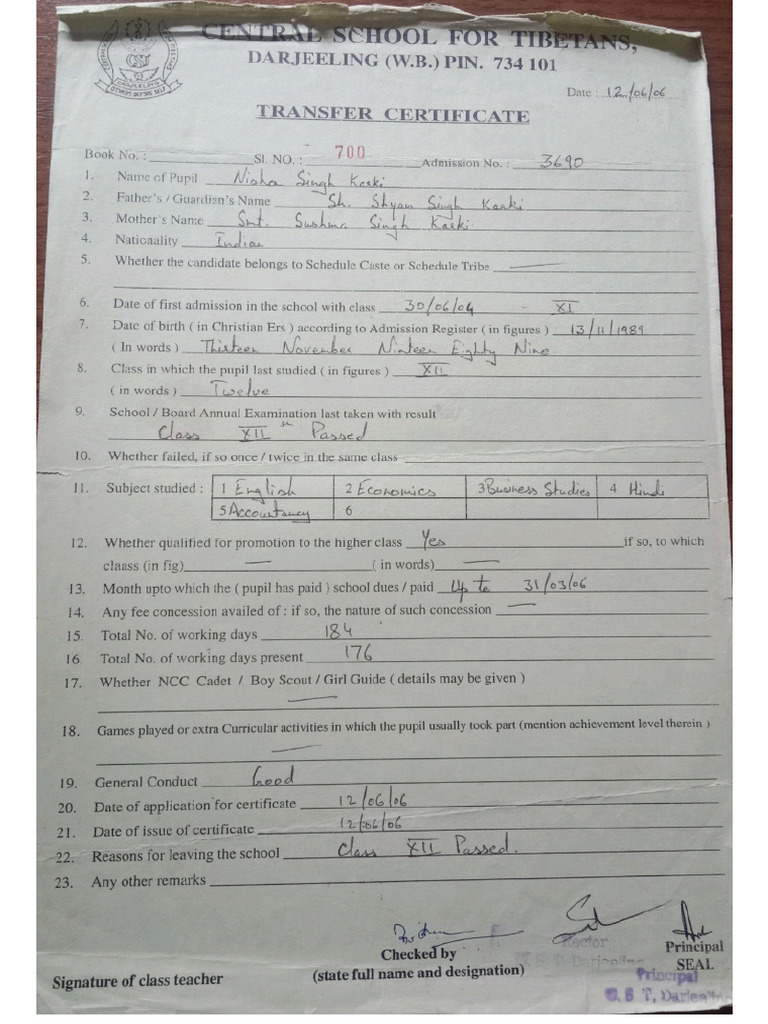 CENTRAL SCHOOL FOR TIBETANS,
DARJEELING (W.B.) PIN. 734 101
CST
OTHERS BEFORE SELF
Date : 12/06/06
TRANSFER CERTIFICATE
Book No. : Sl. NO. : 700 Admission No. : 3690
1. Name of Pupil Nisha Singh Karki
2. Father's / Guardian's Name Sh. Shyam Singh Karki
3. Mother's Name Smt. Sushma Singh Karki.
4. Nationality Indian
5. Whether the candidate belongs to Schedule Caste or Schedule Tribe —
6. Date of first admission in the school with class 30/06/04 - XI
7. Date of birth ( in Christian Ers ) according to Admission Register ( in figures ) 13/11/1989
( In words ) Thirteen November Ninteen Eighty Nine.
8. Class in which the pupil last studied ( in figures ) XII
( in words ) Twelve
9. School / Board Annual Examination last taken with result
Class XIIth Passed
10. Whether failed, if so once / twice in the same class
11. Subject studied : 1 English 2 Economics 3 Business Studies 4 Hindi
5 Accountancy 6
12. Whether qualified for promotion to the higher class Yes if so, to which
claass (in fig) — ( in words) —
13. Month upto which the ( pupil has paid ) school dues / paid Up to 31/03/06
14. Any fee concession availed of : if so, the nature of such concession —
15. Total No. of working days 184
16. Total No. of working days present 176
17. Whether NCC Cadet / Boy Scout / Girl Guide ( details may be given )
—
18. Games played or extra Curricular activities in which the pupil usually took part (mention achievement level therein )
—
19. General Conduct Good
20. Date of application for certificate 12/06/06
21. Date of issue of certificate 12/06/06
22. Reasons for leaving the school Class XII Passed.
23. Any other remarks
Signature of class teacher
Checked by
(state full name and designation)
Rector
S. T. Darjeeling
Principal
SEAL
Principal
C. S T, Darjeeling